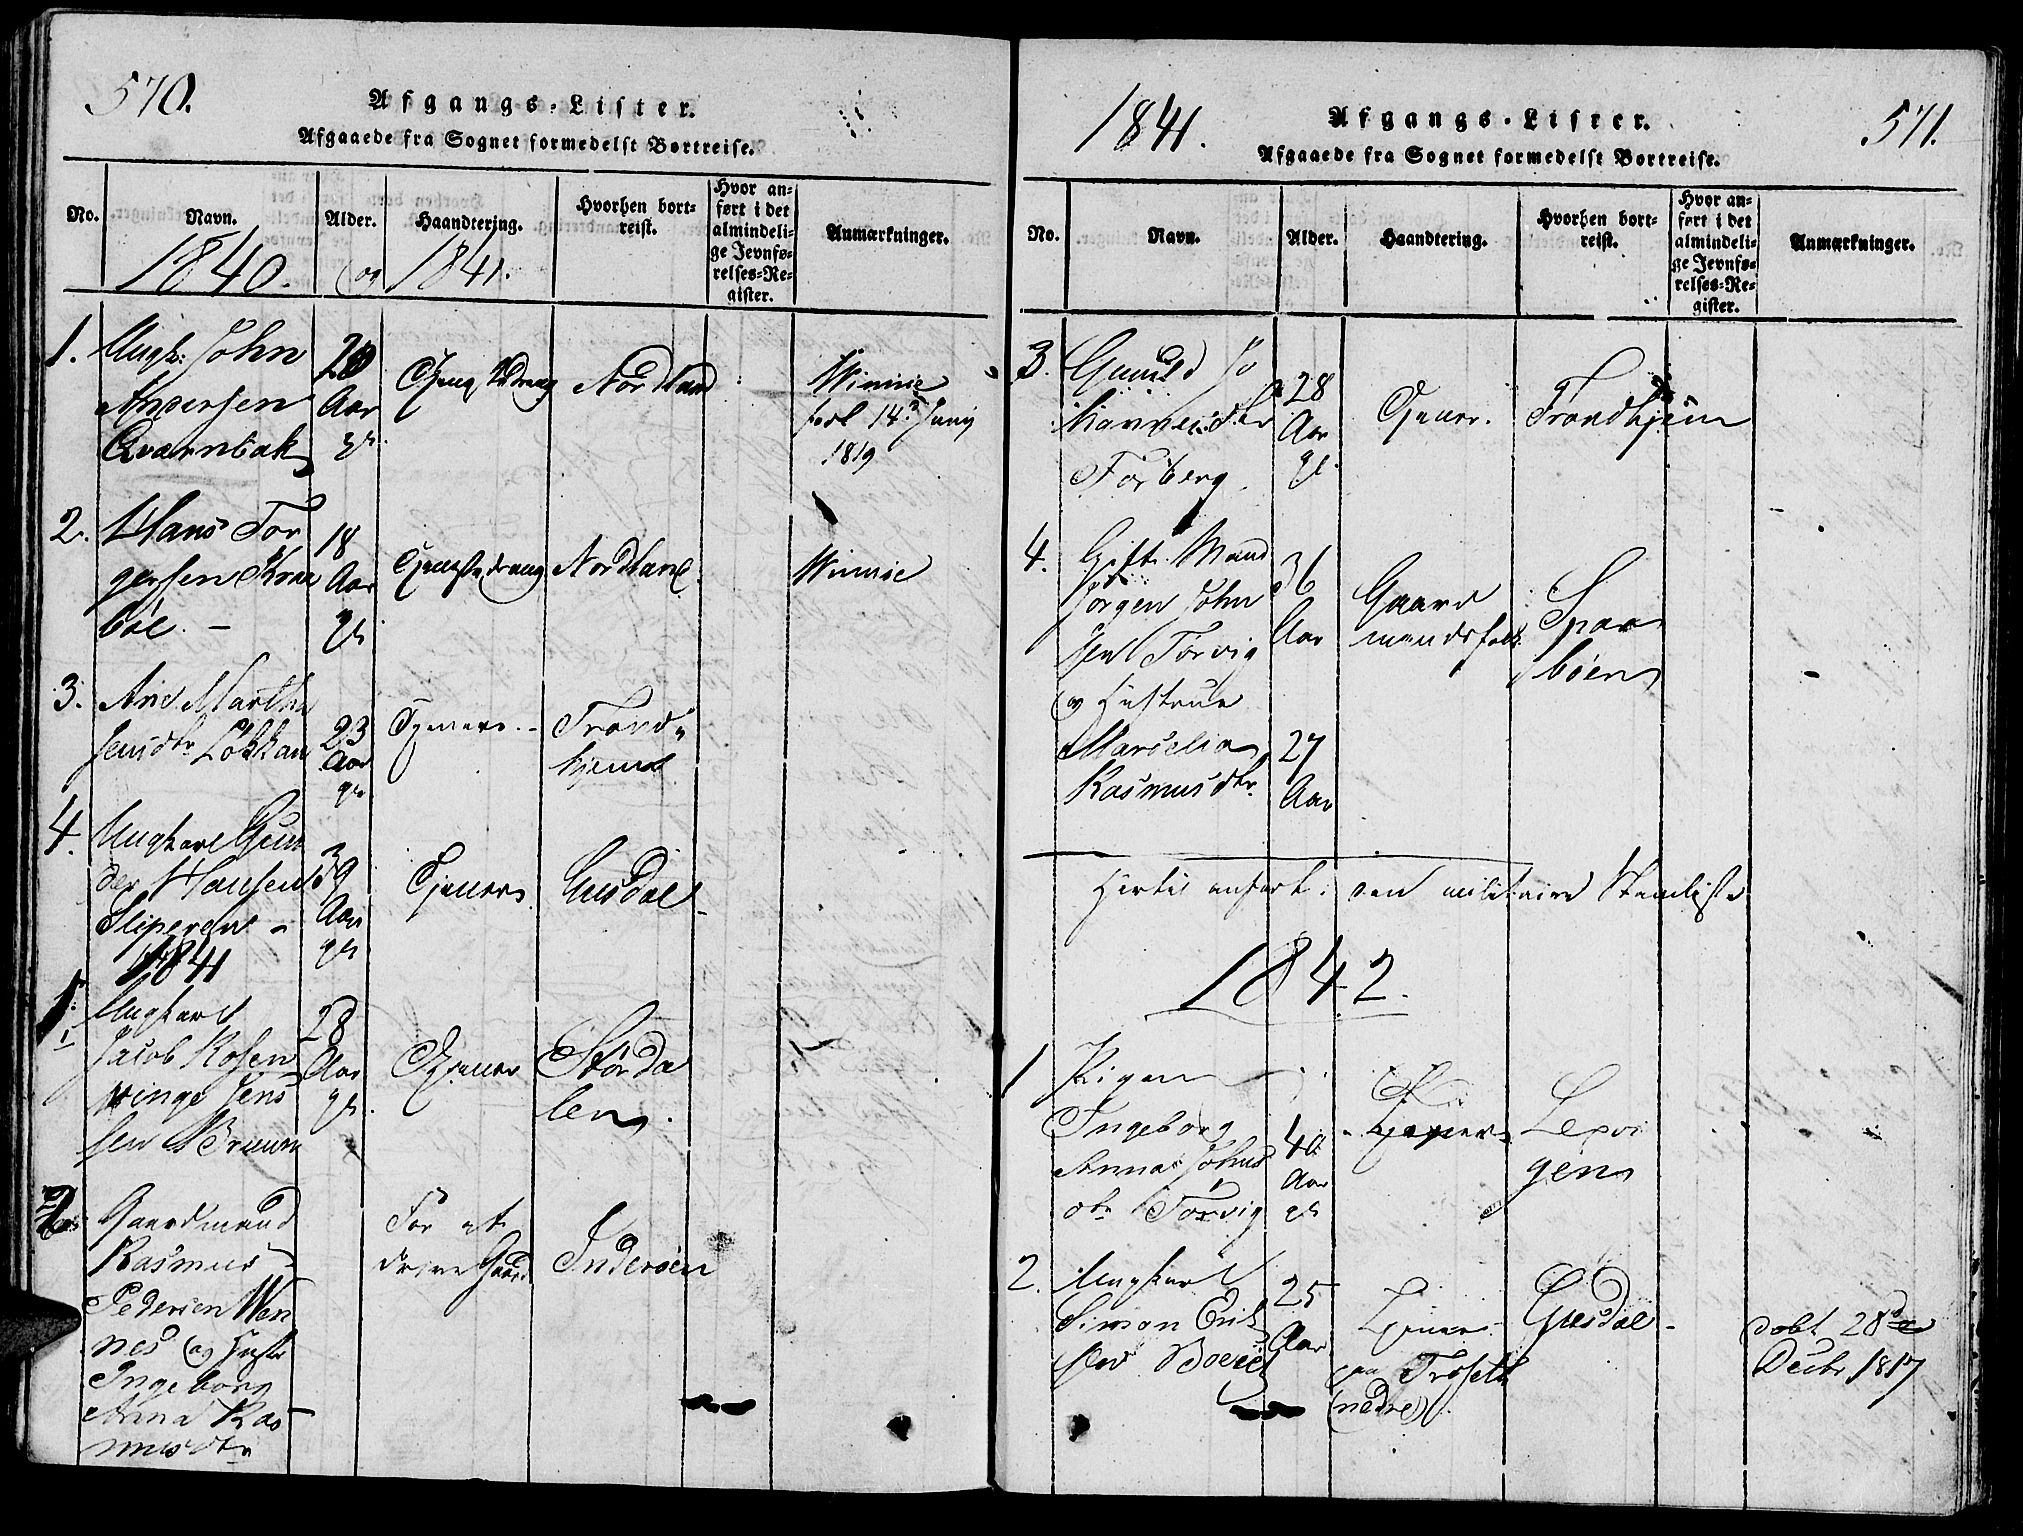 570.
Afgangs-Lister.
Afgaaede fra Sognet formedelst Bortreise.
No.
Navn.
Alder.
Haandtering.
Hvorhen bort-
reist.
Hvor an-
ført i det
almindeli-
ge Jevnfø-
relses-Re-
gister.
Anmærkninger.
1840. og 1841.
1. Ungk: John
Andersen
Qvarnbak
20
Aar
gl.
Tjenestedreng
Nordland
fød 14de Juny
1819
2. Hans Tor
gersen Kraa
böe. -
18
Aar
gl.
Tjenestedreng
Nordland
3. Ane Martha
Jensdtr Løkkan
23
Aar
gl.
Tjenere
Trond-
hjem
4. Ungkarl Gun
der Hansen
Sliperen -
39
Aar
gl.
Tjener
Gusdal
1841
1. Ungkarl
Jacob Rosen
vinge Jens
sen Bruun
28
Aar
gl.
Tjener
Størda
len.
2. Gaardmand
Rasmus
Pedersen Wen
nes og Hustr
Ingeborg
Anna Ras-
musdtr
For at
drive Gaard
Inderøen
1841.
Afgangs-Lister.
571.
Afgaaede fra Sognet formedelst Bortreise.
No.
Navn.
Alder.
Haandtering.
Hvorhen bort-
reist.
Hvor an-
ført i det
almindeli-
ge Jevnfø-
relses-Re-
gister.
Anmærkninger.
3. Gunild Jo
hannesdtr
Forberg
28
Aar
gl.
Tjener.
Trondhjem
4. Gift Mand
Jørgen John
sen Førvig
og Hustrue
Marselia
Rasmusdtr.
36
Aar
27
Aar
Gaard
mandsfolk
Spar
böen
Hertil anført i den militaire Stamliste
1842.
1 Pigen
Ingeborg
Anna Johns
dtr Førvig
40
Aar
gl.
Tjener
Lexvi
gen
2. Ungkarl
Simon Erik
sen
25
Aar
Tjener
paa Trøseth
(nedre).
Gusdal
døbt 28de
Decbr 1817